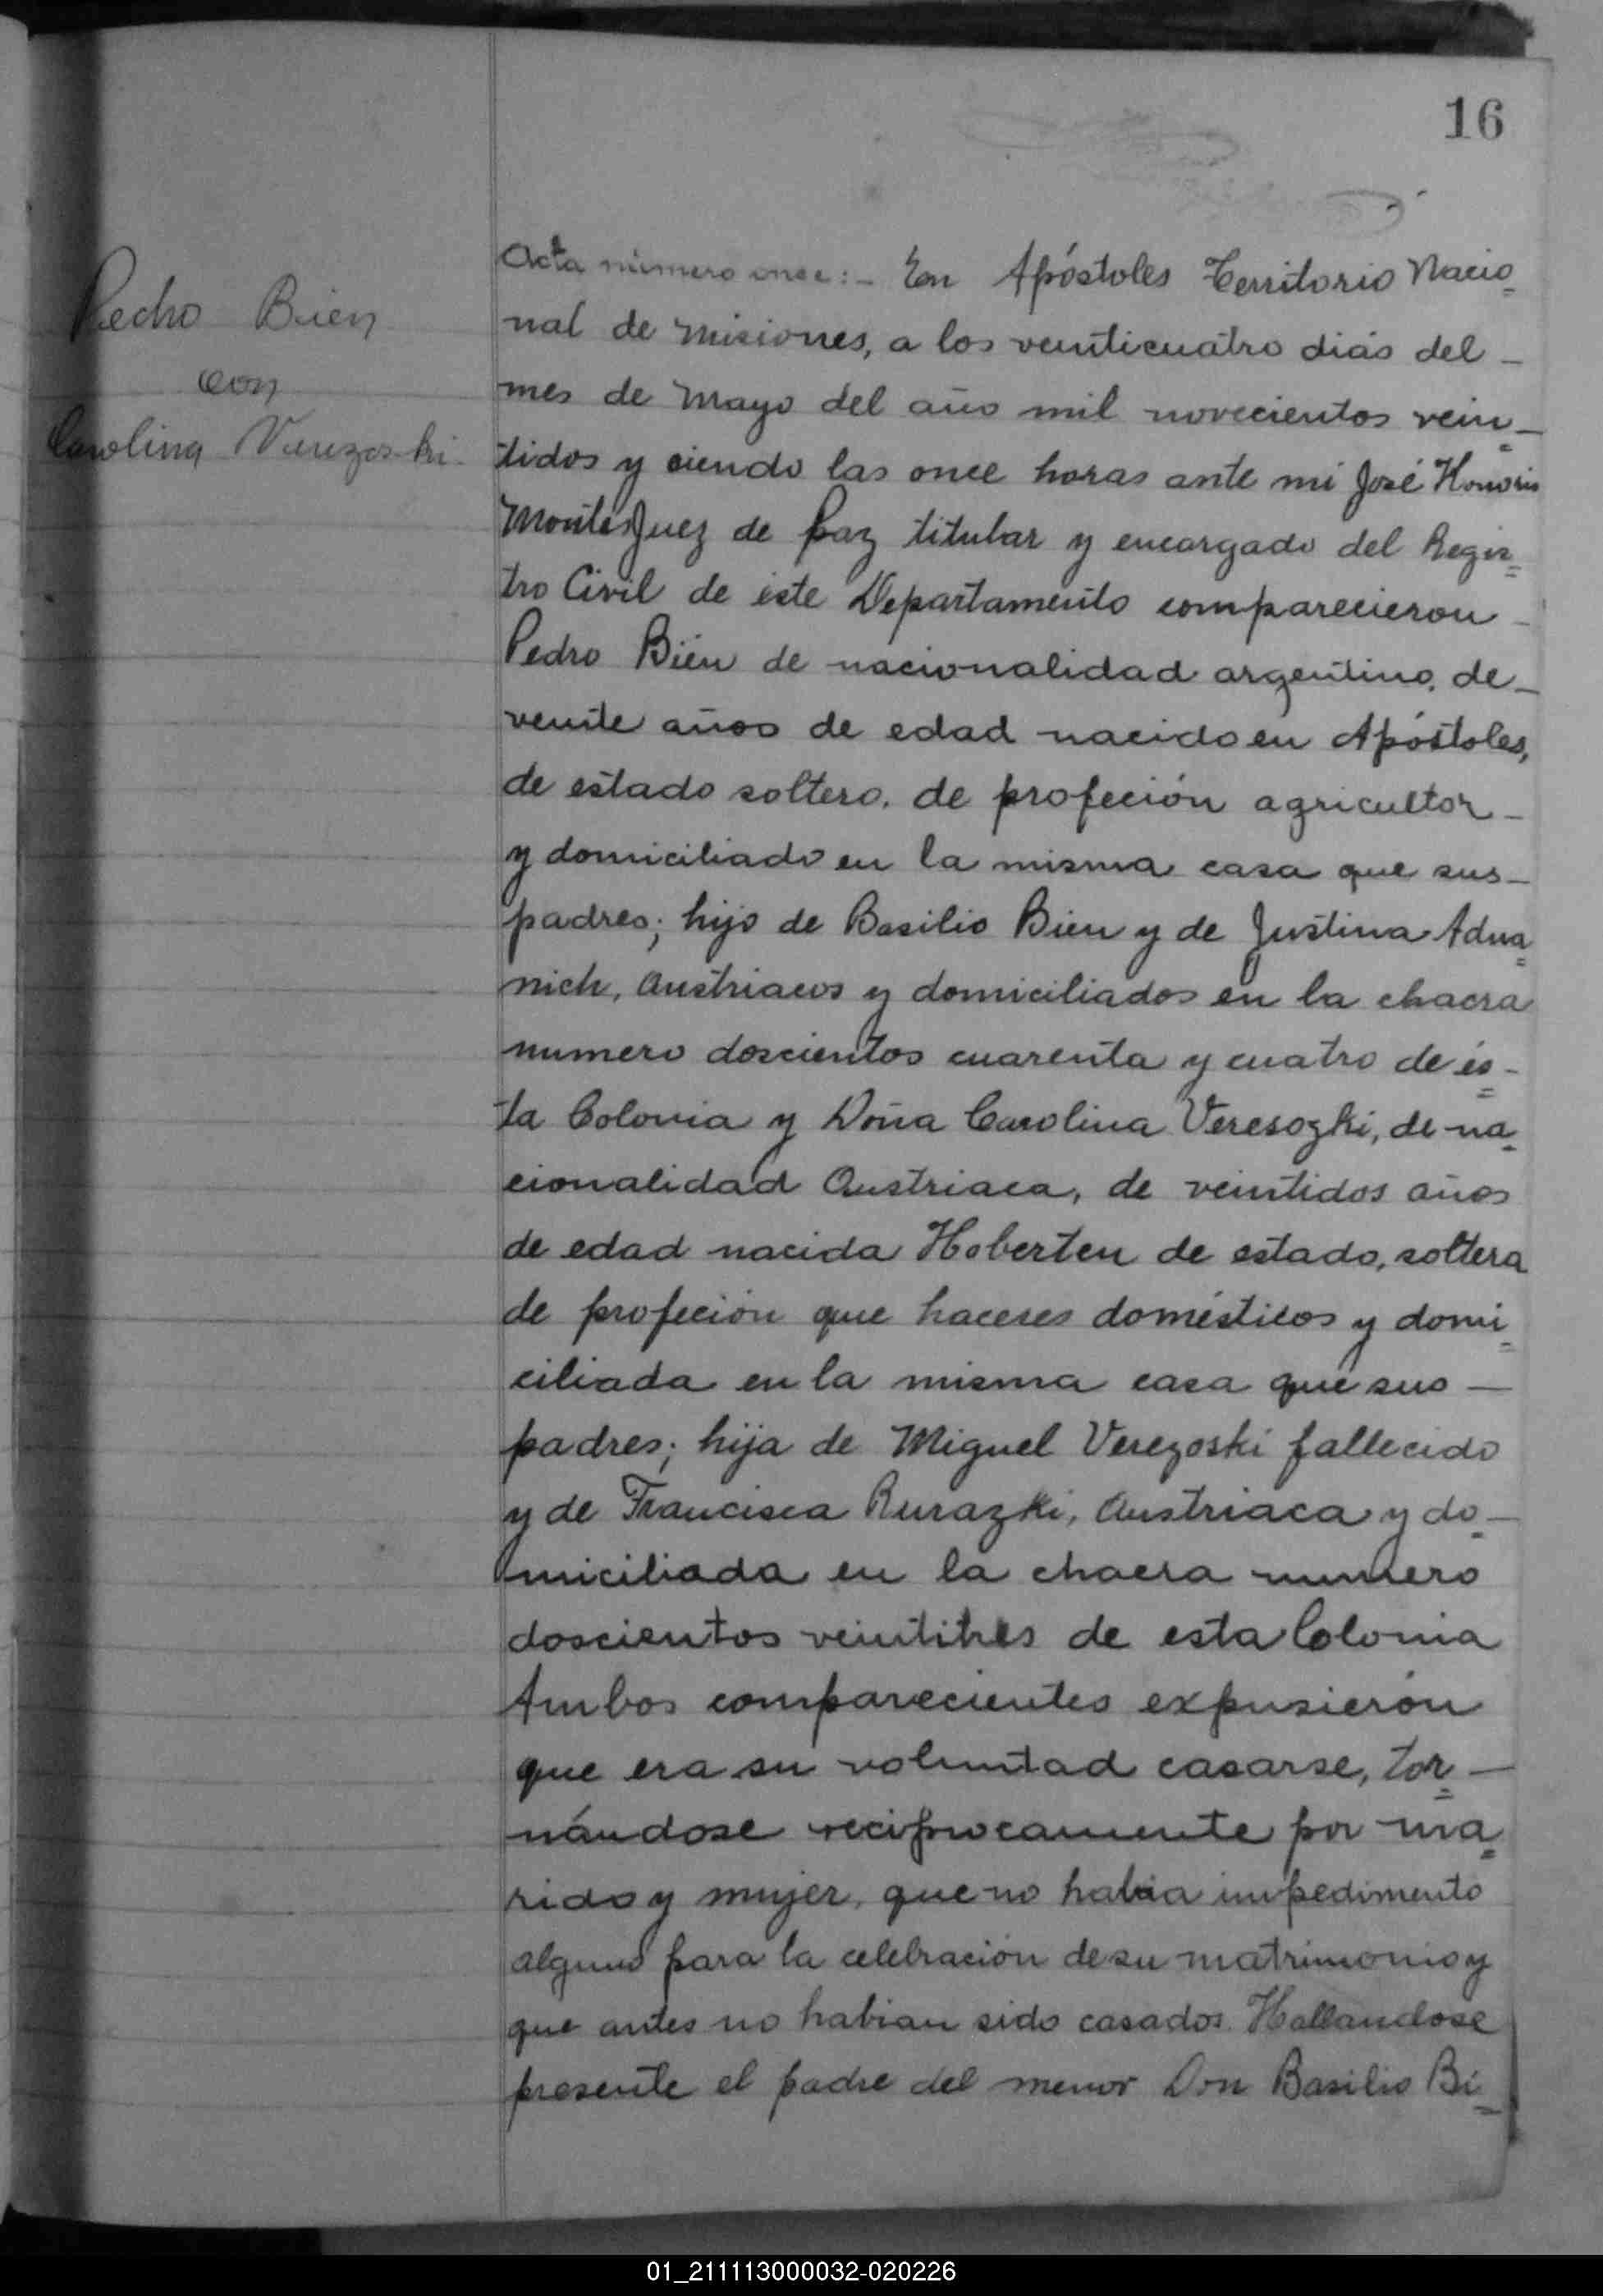 16
Pedro Bien
con
Carolina Verezoski
Acta número once:- En Apóstoles Territorio Nacio
nal de Misiones, a los veinticuatro diás del
mes de Mayo del año mil novecientos vein
tidos y siendo las once horas ante mi José Honorio
Montes Juez de Paz titular y encargado del Regis
tro Civil de éste Departamento comparecieron
Pedro Bién de nacionalidad argentino, de
veinte años de edad nacido en Apóstoles,
de estado soltero, de profeción agricultor
y domiciliado en la misma casa que sus
padres; hijo de Basilio Bien y de Justina Adua
nich, Austriacos y domiciliados en la chacra
numero doscientos cuarenta y cuatro de és
ta Colonia y Doña Carolina Veresozki, de na
cionalidad Austriaca, de veintidos años
de edad nacida Hoberten de estado, soltera
de profeción que haceres domésticos y domi
ciliada en la misma casa que sus
padres; hija de Miguel Verezoski fallecido
y de Francisca Rurazki, Austriaca y do
miciliada en la chacra numero
doscientos veintitres de esta Colonia
Ambos comparecientes expusierón
que era su voluntad casarse, tor
nándose reciprocamente por ma
rido y mujer, que no habia impedimento
alguno para la celebración de su matrimonio y
que antes no habian sido casados. Hallandose
presente el padre del menor Don Basilio Bi
01_211113000032-020226